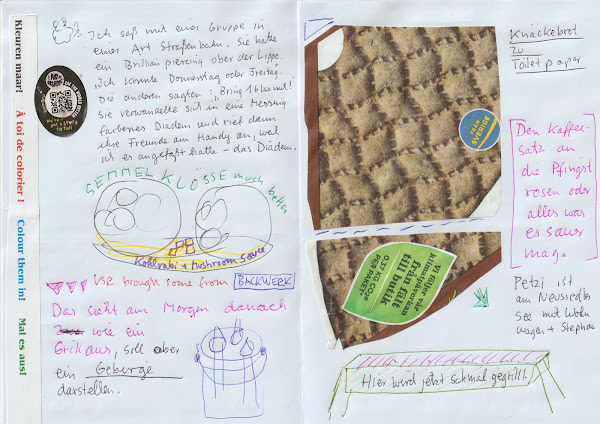 Kleuren maar! À toi de colorier! Colour them in! Mal es aus!
Ich saß mit einer Gruppe in
einer Art Straßenbahn. Sie hatte
ein Brilliantpiercing über der Lippe.
"Ich könnte Donnerstag oder Freitag."
Die anderen sagten: "Bring 16 las mit!"
Sie verwandelte sich in eine Messing
farbenes Diadem und rief dann
ihre Freunde am Handy an, weil
ich es angefaßt hatte – das Diadem.
We've
got a story
to tell!
SEMMEL KLÖSSE much better
Kohlrabi + Mushroom sauce
USR brought some from BACKWERK
Das sieht am Morgen danach
wie ein
Grill aus, soll aber
ein Gebirge
darstellen.
FRÅN
SVERIGE
Vi följer vår
klimatpåverkan
från fält
till butik
0,37 KG CO2e
PER PAKET*
Knäckebrot
zu
Toiletpaper
Den Kaffee-
satz an
die Pfingst
rosen oder
alles was
es sauer
mag.
Petzi ist
am Neusiedler
See mit Wohn
wagen + Stephan
Hier wird jetzt schmal gegrillt